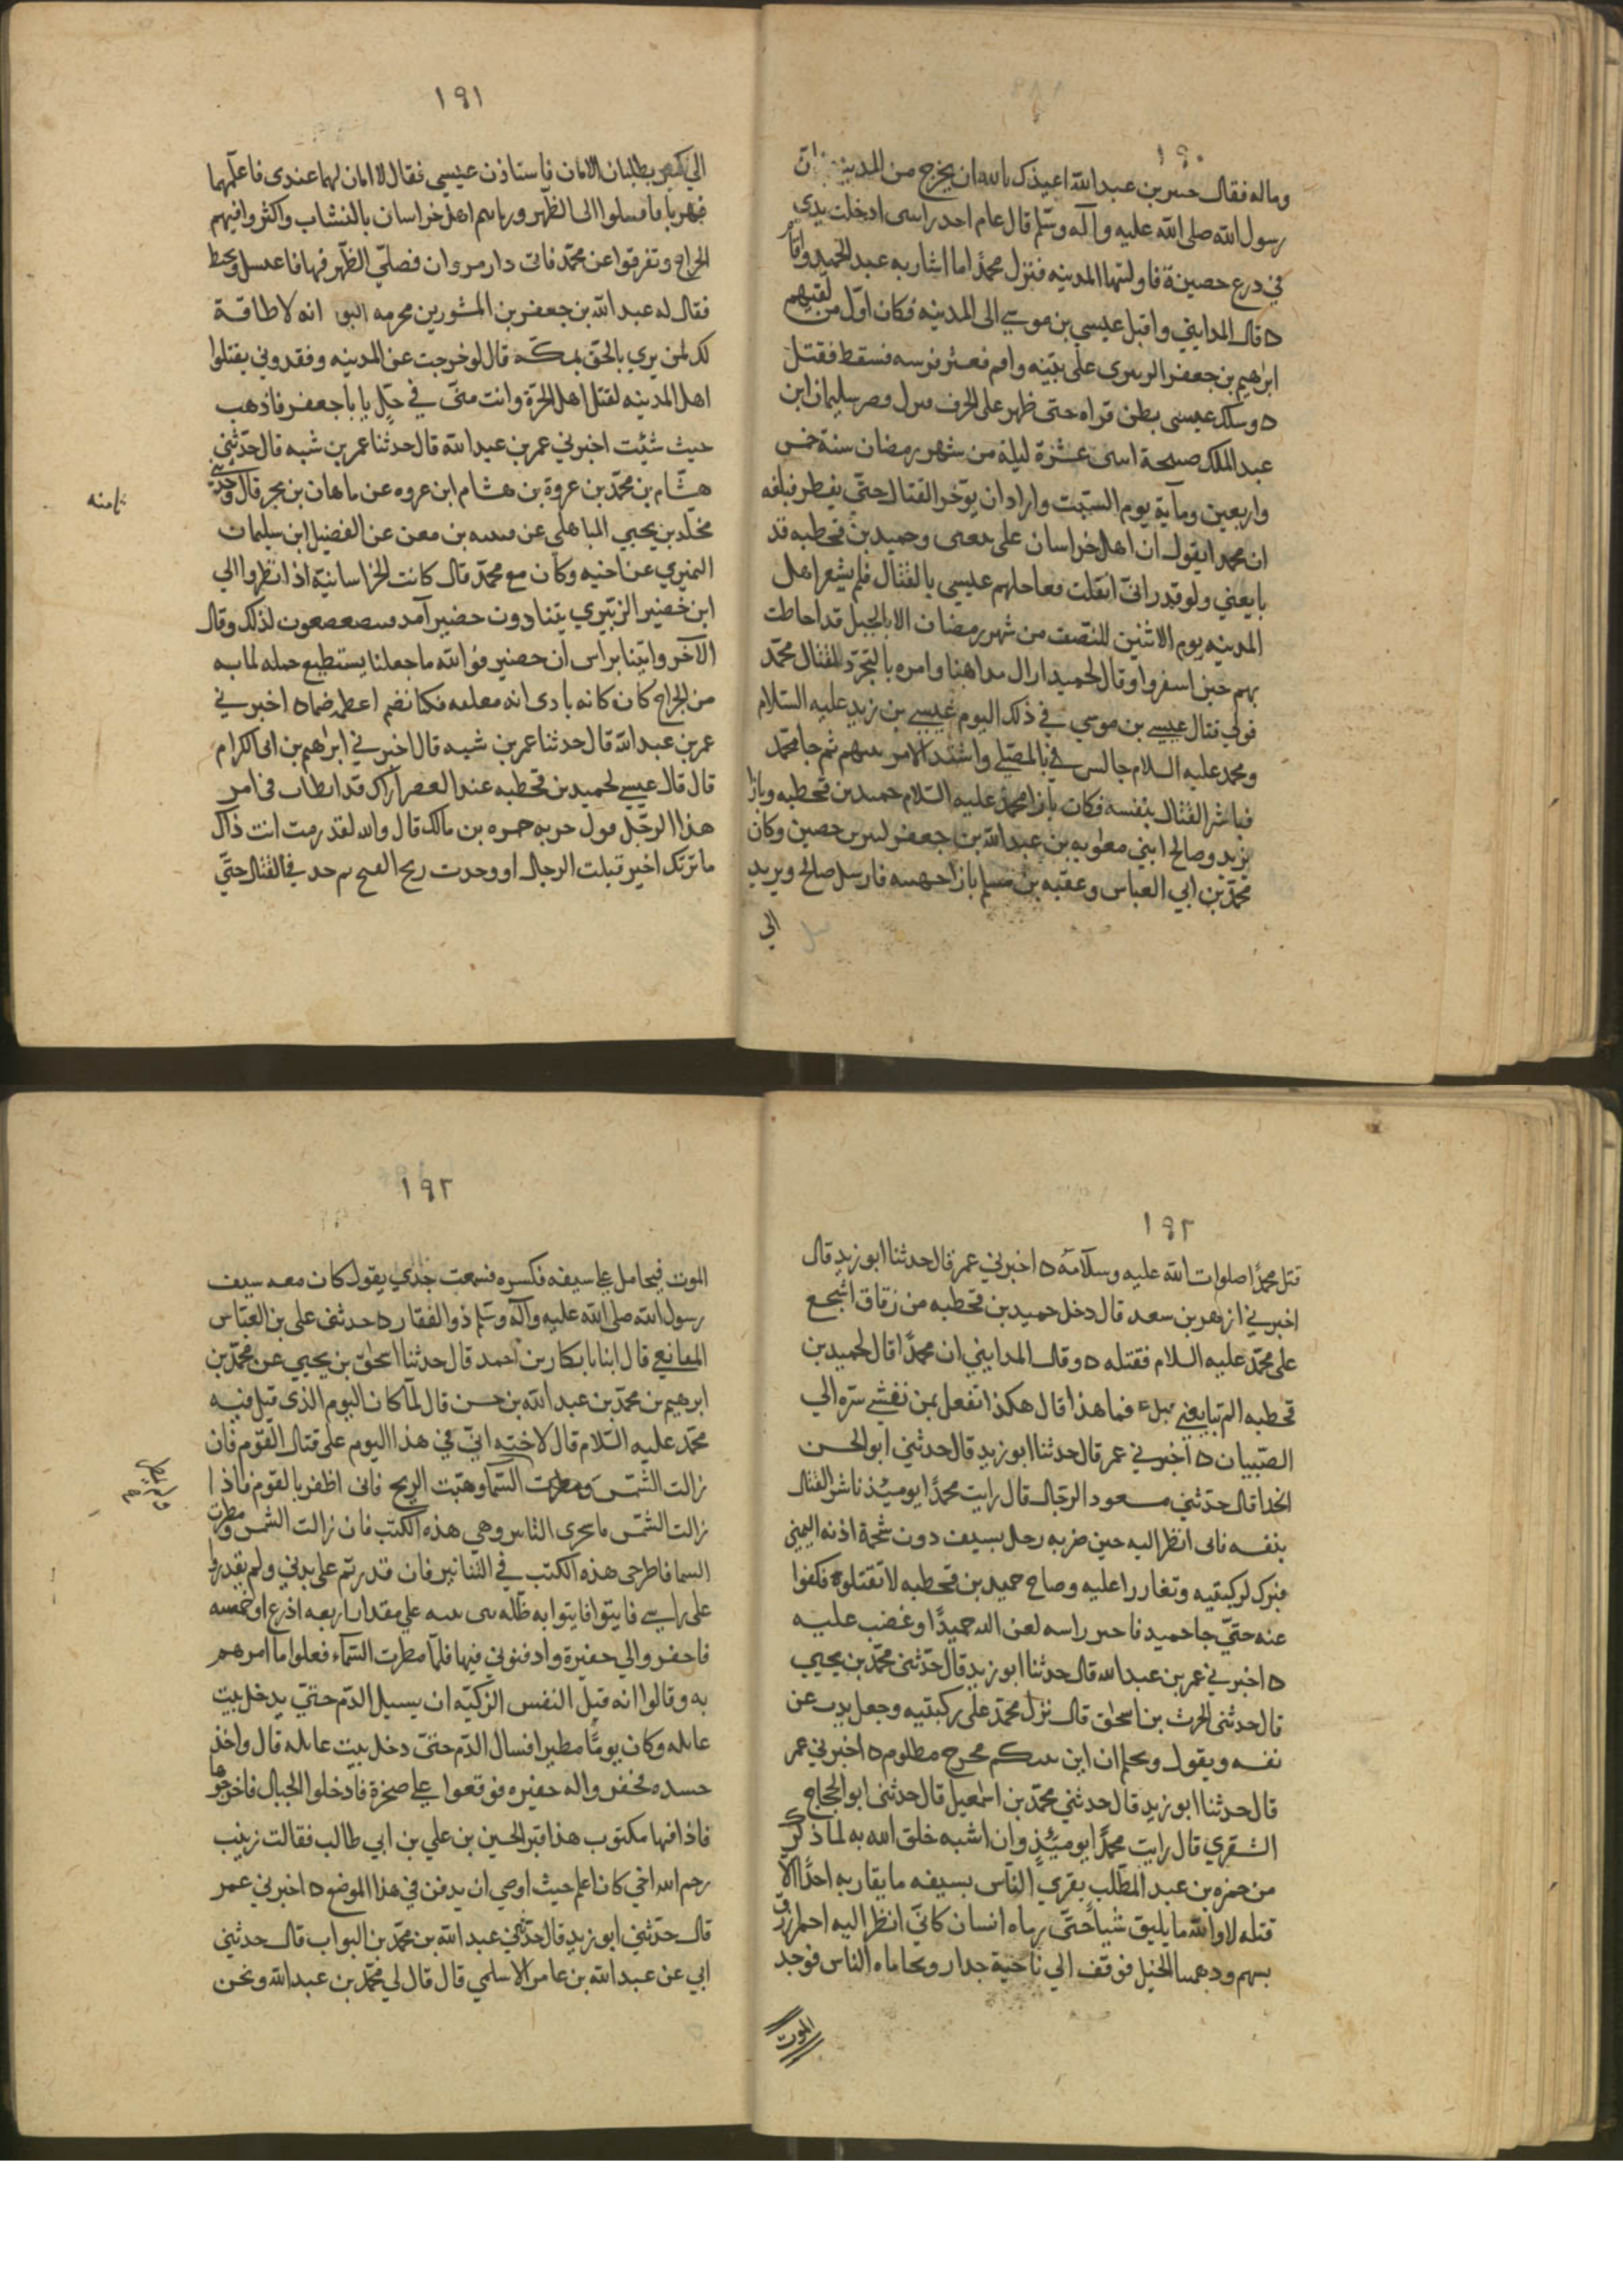 ١٩٠
وماله فقال حسر بن عبد الله اعيذك بالله ان يخرج من المدينة ان
رسول الله صلى الله عليه وآله وسلم قال عام احد راسى ادخلت يدي
في درع حصينة فاولتها المدينه فنزل محمدا اما اشار به عبد الحميد واقام
ه قال المدايني واقبل عيسي بن موسي الى المدينه فكان اول من لقيهم
ابرهيم بن جعفر الرسرى على بنيه واقم فعثر فرسه فسقط فقتل
ه وسلك عيسى بطن قراه حتى ظهر على الجرف فنزل قصر سليمان ابن
عبد الملك صبيحة اسى عشرة ليلة من شهر رمضان سنة خمس
واربعين ومآية يوم السبت واراد ان يؤخر القتال حتى يفطر فبلغه
ان محمدا يقول ان اهل خراسان على بيعتى وحميد بن قحطبه قد
بايعني ولو قدر اني انقلت فعاجلهم عيسي بالقتال فلم يشعر اهل
المدينه يوم الاثنين للنصف من شهر رمضان الا بالخيل قد احاطت
بهم حين اسفروا وقال لحميد ارال مداهنا وامره بالتجرد للقتال محمد
فولي قتال عيسي بن موسي في ذلك اليوم عيسي بن زيد عليه السلام
ومحمد عليه السلام جالس في بالمصلي واشتد الامر بينهم ثم جا محمد
فباشر القتال بنفسه فكان بازا محمد عليه السلام حميد بن قحطبه وبازا
يزيد وصالح ابني معويه بن عبد الله بن جعفر كثير بن حصين وكان
محمد بن ابي العباس وعقبه بن مسلم بازا جهينه فارسل صالح ويزيد
الي
١٩١
الي كثير يطلبان الامان فاستاذن عيسي فقال لا امان لهما عندى فاعلمهما
فهربا فاقتتلوا الى الظهر ورماهم اهل خراسان بالنشاب واكثروا فيهم
الجراح وتفرقوا عن محمد فاتى دار مروان فصلي الظهر فيها فاغتسل وتحنط
فقال له عبد الله بن جعفر بن المشورين مخرمه انه لا طاقة
لك لمن يري بالحق بمكة قال لو خرجت عن المدينه وفقدوني يقتلوا
اهل المدينه لقتل اهل الحرة وانت منى في حل يا با جعفر فاذهب
حيث شئت اخبرني عمر بن عبد الله قال حدثنا عمر بن شبه قال حدثني
هشام بن محمد بن عروة بن هشام ابن عروه عن ماهان بن بحر قال وحدثني
مخلد بن يحيي الباهلى عن بن معن عن الفضيل ابن سليمان
النميري عن اخيه وكان مع محمد قال كانت الخراسانية اذا نظروا الي
ابن خضير الزبيري يتنادون خضير آمد لذلك وقال
الآخر واتينا براس ابن خضير فو الله ما جعلنا يستطيع حمله لما به
من الجراح كان كانه باذى انه فكنا نضم اعظمه ضما ه اخبرني
عمر بن عبد الله قال حدثنا عمر بن شبه قال اخبرني ابراهيم بن ابى الكرام
قال قال عيسي لحميد بن قحطبه عند العصر اراك قد ابطات فى امر
هذا الرجل فول حربه حمزه بن مالك قال والله لقد رمت انت ذاك
ما تركتك اخير قتلت الرجال او وجدت ريح الفتح ثم جد في القتال حتى
ثامنه
١٩٢
قتل محمدا صلوات الله عليه وسلامه ه اخبرني عمر قال حدثنا ابو زيد قال
اخبرني ازهر بن سعد قال دخل حميد بن قحطبه من زقاق اشجع
على محمد عليه السلام فقتله ه وقال المدايني ان محمدا قال لحميد بن
قحطبه الم تبايعني فما هذا قال هكذا تفعل بمن نفشي سره الي
الصبيان ه اخبرني عمر قال حدثنا ابو زيد قال حدثني ابو الحسن
الحدا قال حدثني مسعود الرجال قال رايت محمدا يوميذ ناشر القتال
بنفسه فانى انظر اليه حين ضربه رجل بسيف دون شحمة اذنه اليمني
فبرك لركبتيه وتغاورا عليه وصاح حميد بن قحطبه لا تقتلوه فكفوا
عنه حتى جا حميد فاحتز راسه لعن الله حميدا وغضب عليه
ه اخبرني عمر بن عبد الله قال حدثنا ابو زيد قال حدثنى محمد بن يحيي
قال حدثنى الحرث بن اسحق قال نزل محمد على ركبتيه وجعل يذب عن
نفسه ويقول ويحكم ان ابن نبيكم محرج مظلوم ه اخبرني عمر
قال حدثنا ابو زيد قال حدثني محمد بن اسمعيل قال حدثنى ابو الحجاج
الشقري قال رايت محمدا يوميئذ وان اشبه خلق الله به لما ذكر
من حمزه بن عبد المطلب يفري الناس بسيفه ما يقاربه احدا الا
قتله لا والله ما يليق شيا حتى رماه انسان كانى انظر اليه احمر ازرق
بسهم ودهمنا الخيل فوقف الي ناحية جدار وتحاماه الناس فوجد
الموت
١٩٣
الموت فيحامل علي سيفه فكسره فسمعت جدي يقول كان معه سيف
رسول الله صلى الله عليه وآله وسلم ذو الفقار ه حدثنى على بن العباس
المقانعي قال انبانا بكار بن احمد قال حدثنا اسحق بن يحيي عن محمد بن
ابرهيم بن محمد بن عبد الله بن حسن قال لما كان اليوم الذي قتل فيه
محمد عليه السلام قال لاخته اني في هذا اليوم على قتال القوم فان
زالت الشمس ومطرت السما وهبت الريح فانى اظفر بالقوم فاذا
زالت الشمس ما يجرى الناس وهي هذه الكتب فان زالت الشمس ومطرت
السما فاطرحى هذه الكتب في التنانير فان قدرتم على بدني ولم يقدروا
على راسي فايتوا فايتوا به ظله بنى نبيه علي مقدار اربعه اذرع او خمسه
فاحفروا لي حفيرة وادفنوني فيها فلما مطرت السماء فعلوا ما امرهم
به وقالوا انه قتل النفس الزكيه ان يسيل الدم حتى يدخل بيت
عاتكه وكان يوما مطيرا فسال الدم حتى دخل بيت عاتكه قال واخذ
جسده فحفروا له حفيره فوقعوا علي صخرة فادخلوا الحبال فاخرجوها
فاذا فيها مكتوب هذا قبر الحسين بن علي بن ابي طالب فقالت زينب
رحم الله اخي كان اعلم حيث اوصي ان يدفن في هذا الموضع ه اخبرني عمر
قال حدثني ابو زيد قال حدثني عبد الله بن محمد بن البواب قال حدثني
ابي عن عبد الله بن عامر الاسلمي قال قال لي محمد بن عبد الله ونحن